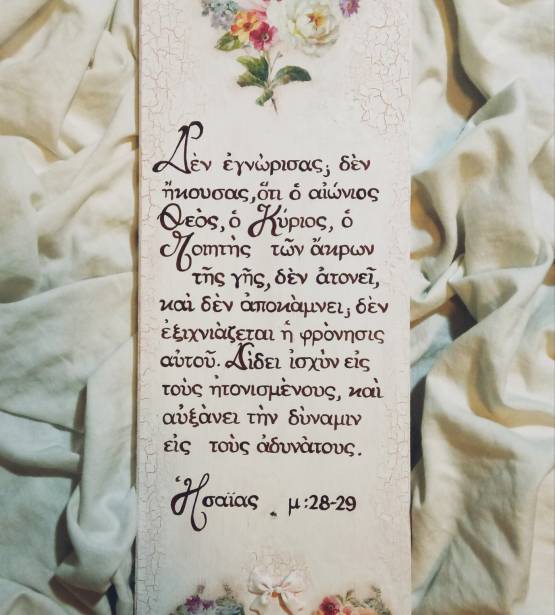 Δὲν ἐγνώρισας; δὲν
ἤκουσας, ὅτι ὁ αἰώνιος
Θεὸς, ὁ Κύριος, ὁ
Ποιητὴς τῶν ἄκρων
τῆς γῆς, δὲν ἀτονεῖ,
καὶ δὲν ἀποκὰμνει; δὲν
ἐξιχνιὰζεται ἡ φρὸνησις
αὐτοῦ. Δὶδει ἰσχὺν εἰς
τοὺς ἠτονισμὲνους, καὶ
αὐξὰνει τὴν δὺναμιν
εἰς τοὺς ἀδυνὰτους.
Ἡσαΐας . μ:28-29